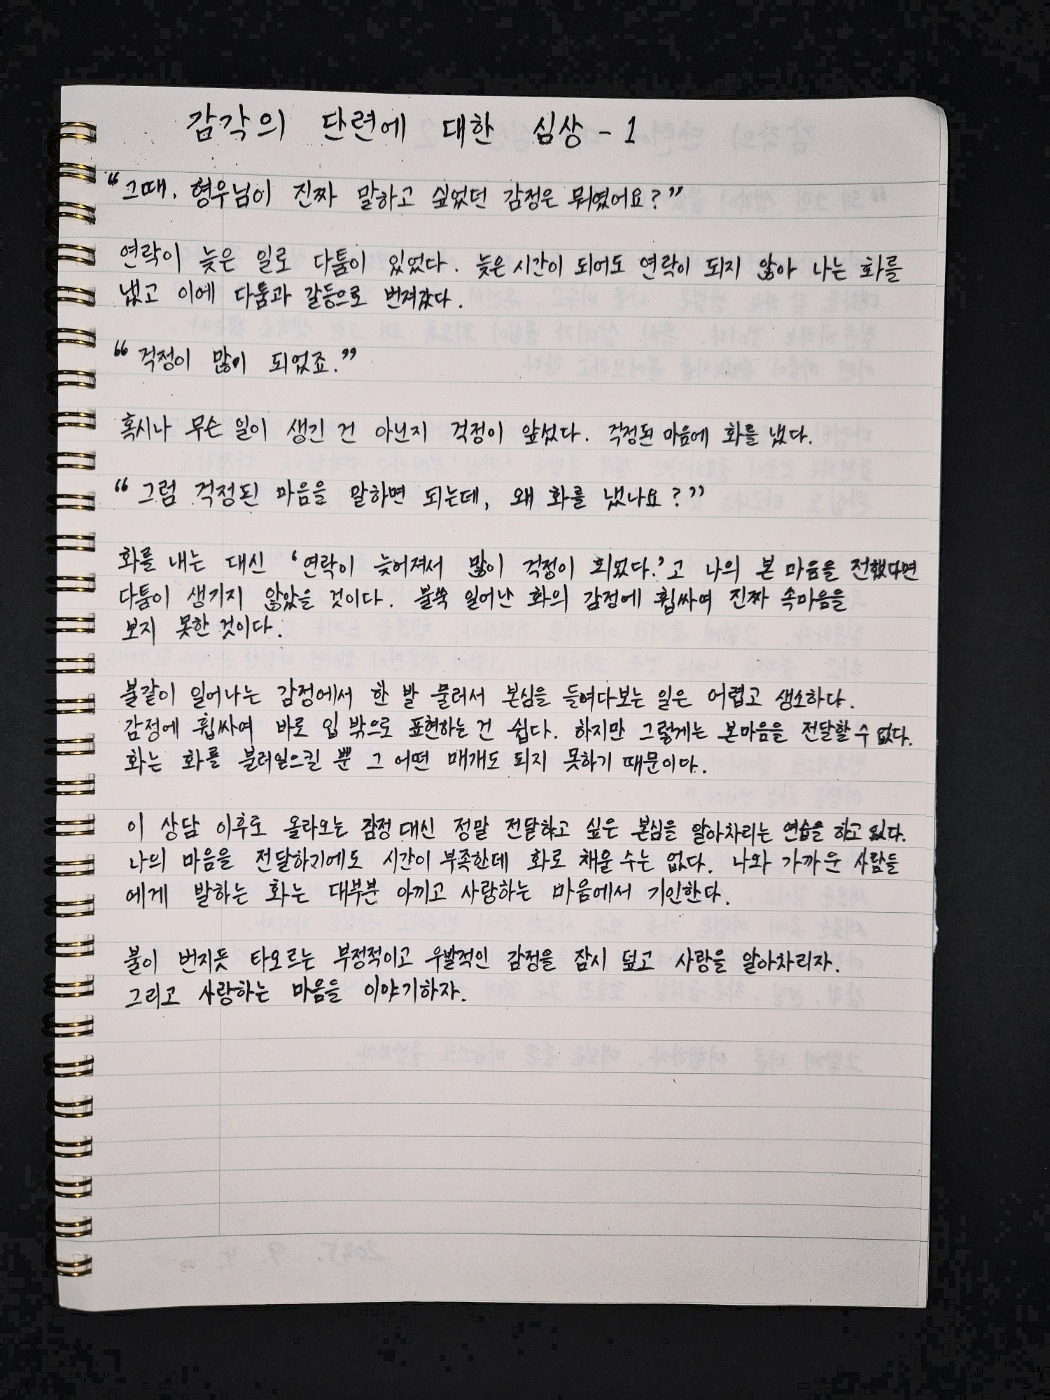 감각의 단련에 대한 심상 - 1
“그때, 형우님이 진짜 말하고 싶었던 감정은 뭐였어요?”
연락이 늦은 일로 다툼이 있었다. 늦은 시간이 되어도 연락이 되지 않아 나는 화를
냈고 이에 다툼과 갈등으로 번져갔다.
“걱정이 많이 되었죠.”
혹시나 무슨 일이 생긴 건 아닌지 걱정이 앞섰다. 걱정된 마음에 화를 냈다.
“그럼 걱정된 마음을 말하면 되는데, 왜 화를 냈나요?”
화를 내는 대신 ‘연락이 늦어져서 많이 걱정이 되었다.’고 나의 본 마음을 전했다면
다툼이 생기지 않았을 것이다. 불쑥 일어난 화의 감정에 휩싸여 진짜 속마음을
보지 못한 것이다.
불같이 일어나는 감정에서 한 발 물러서 본심을 들여다보는 일은 어렵고 생소하다.
감정에 휩싸여 바로 입 밖으로 표현하는 건 쉽다. 하지만 그렇게는 본마음을 전달할 수 없다.
화는 화를 불러일으킬 뿐 그 어떤 매개도 되지 못하기 때문이다.
이 상담 이후로 올라오는 감정 대신 정말 전달하고 싶은 본심을 알아차리는 연습을 하고 있다.
나의 마음을 전달하기에도 시간이 부족한데 화로 채울 수는 없다. 나와 가까운 사람들
에게 발하는 화는 대부분 아끼고 사랑하는 마음에서 기인한다.
불이 번지듯 타오르는 부정적이고 우발적인 감정을 잠시 덮고 사랑을 알아차리자.
그리고 사랑하는 마음을 이야기하자.